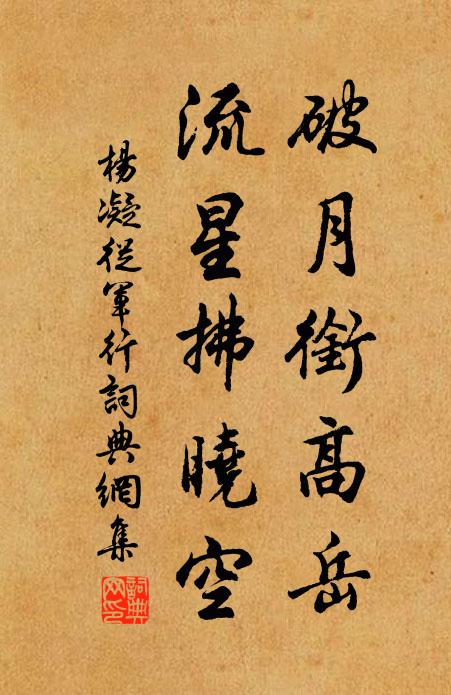 破月銜高岳
流星拂曉空
楊凝從軍行詞典網集
詞典网印